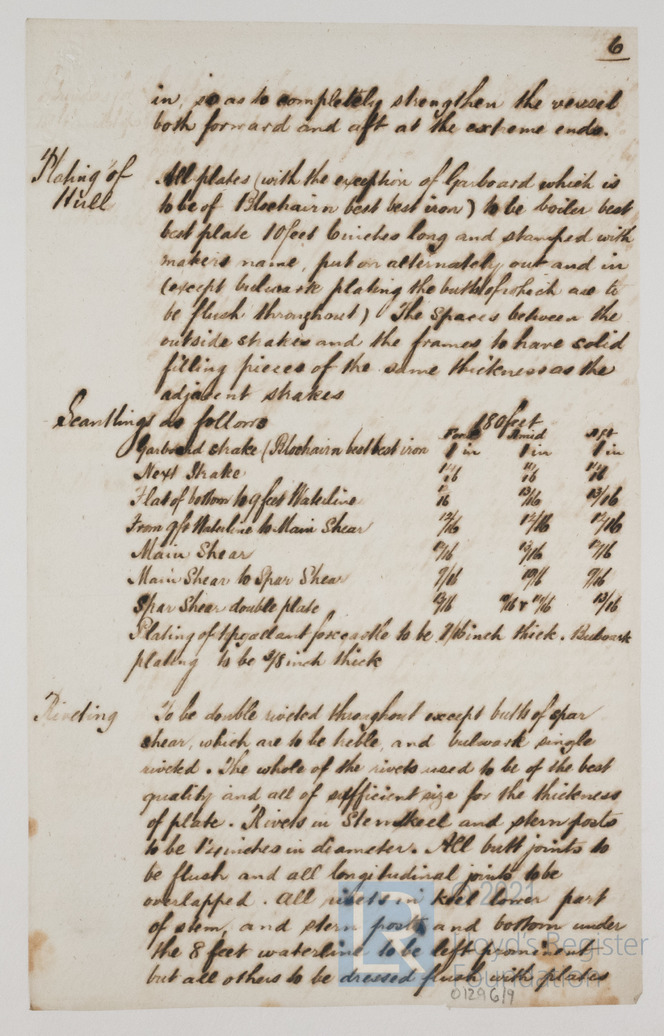 6
in, so as to completely strengthen the vessel
both forward and aft at the extreme ends.
Plating of
Hull
All plates (with the exception of Garboard which is
to be of Blochairn best best iron) to be boiler best
best plate 10 feet 6 inches long and stamped with
makers name, put on alternately out and in
(except bulwark plating the butts of which are to
be flush throughout) The Spaces between the
outside strakes and the frames to have solid
filling pieces of the same thickness as the
adjacent strakes
Scantlings as follows
180 feet
Ford Amid Aft
Garboard strake (Blochairn best best iron 1 in 1 in 1 in
Next Strake 11/16 11/16 11/16
Flat of bottom to 9 feet Waterline 13/16 13/16
From 9 ft Waterline to Main Shear 12/16 12/16 12/16
Main Shear
Main Shear to Spar Shear 9/16 10/16 9/16
Spar Shear double plate 13/16 13/16
Plating of topgallant forecastle to be inch thick. Bulwark
plating to be 3/8 inch thick
Riveting
To be double riveted throughout except butts of spar
shear, which are to be treble, and bulwark single
riveted. The whole of the rivets used to be of the best
quality and all of sufficient size for the thickness
of plate. Rivets in Stem Keel and stern posts
to be 1¼ inches in diameter. All butt joints to
be flush and all longitudinal joints to be
overlapped. All rivets in keel lower part
of stem, and stern posts, and bottom under
the 8 feet waterline to be left prominent,
but all others to be dressed flush with plates
© 2021
Lloyd's Register
Foundation
0129 6/9